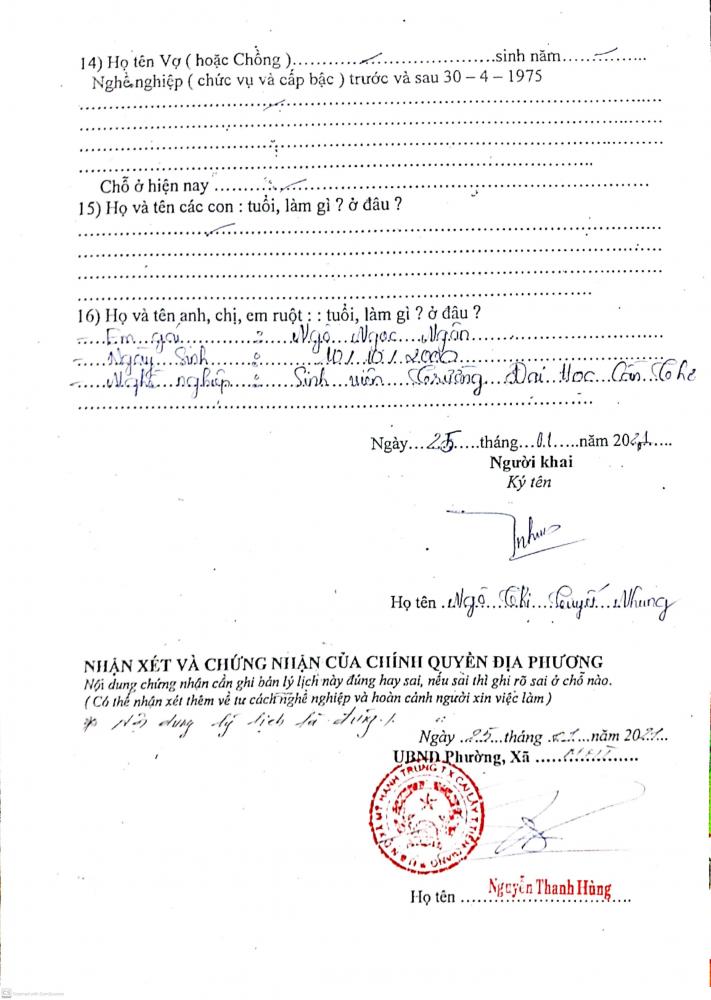 14) Họ tên Vợ ( hoặc Chồng )..............................................sinh năm..................
Nghề nghiệp ( chức vụ và cấp bậc ) trước và sau 30 – 4 – 1975
Chỗ ở hiện nay ..........................................................................
15) Họ và tên các con : tuổi, làm gì ? ở đâu ?
16) Họ và tên anh, chị, em ruột : : tuổi, làm gì ? ở đâu ?
- Em gái : Ngô Ngọc Ngân
- Ngày Sinh : 10/10/2000
- Nghề nghiệp : Sinh viên Trường Đại Học Cần Thơ
Ngày...25.....tháng...01.....năm 2021.....
Người khai
Ký tên
Họ tên Ngô Thị Tuyết Nhung
NHẬN XÉT VÀ CHỨNG NHẬN CỦA CHÍNH QUYỀN ĐỊA PHƯƠNG
Nội dung chứng nhận cần ghi bản lý lịch này đúng hay sai, nếu sai thì ghi rõ sai ở chỗ nào.
( Có thể nhận xét thêm về tư cách nghề nghiệp và hoàn cảnh người xin việc làm )
* Nội dung lý lịch là đúng.
Ngày ...25....tháng ...01...năm 2021...
UBND Phường, Xã ...MHT...
U.B.N.D XÃ MỸ HẠNH TRUNG T.X CAI LẬY T.TIỀN GIANG
Nguyễn Thanh Hùng
Họ tên ..............................
CS Scanned with CamScanner